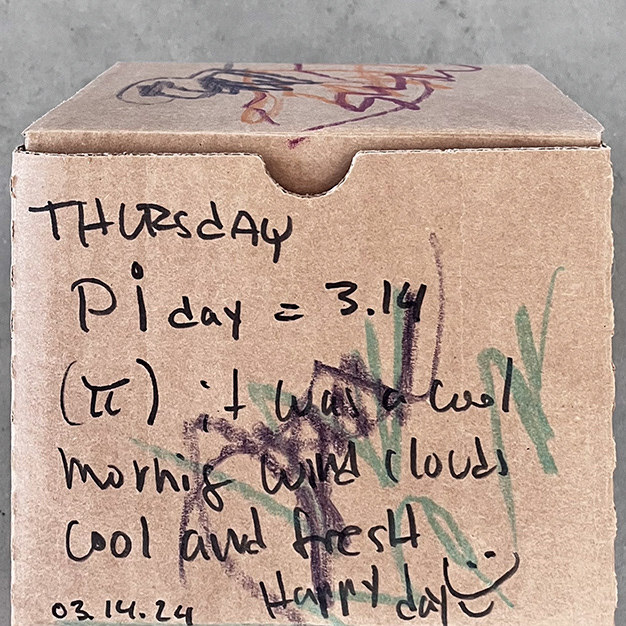 THURSdAy
Pi day = 3.14
(π) it was a cool
mornig wind clouds
cool and fresH
Happy day
03.14.24